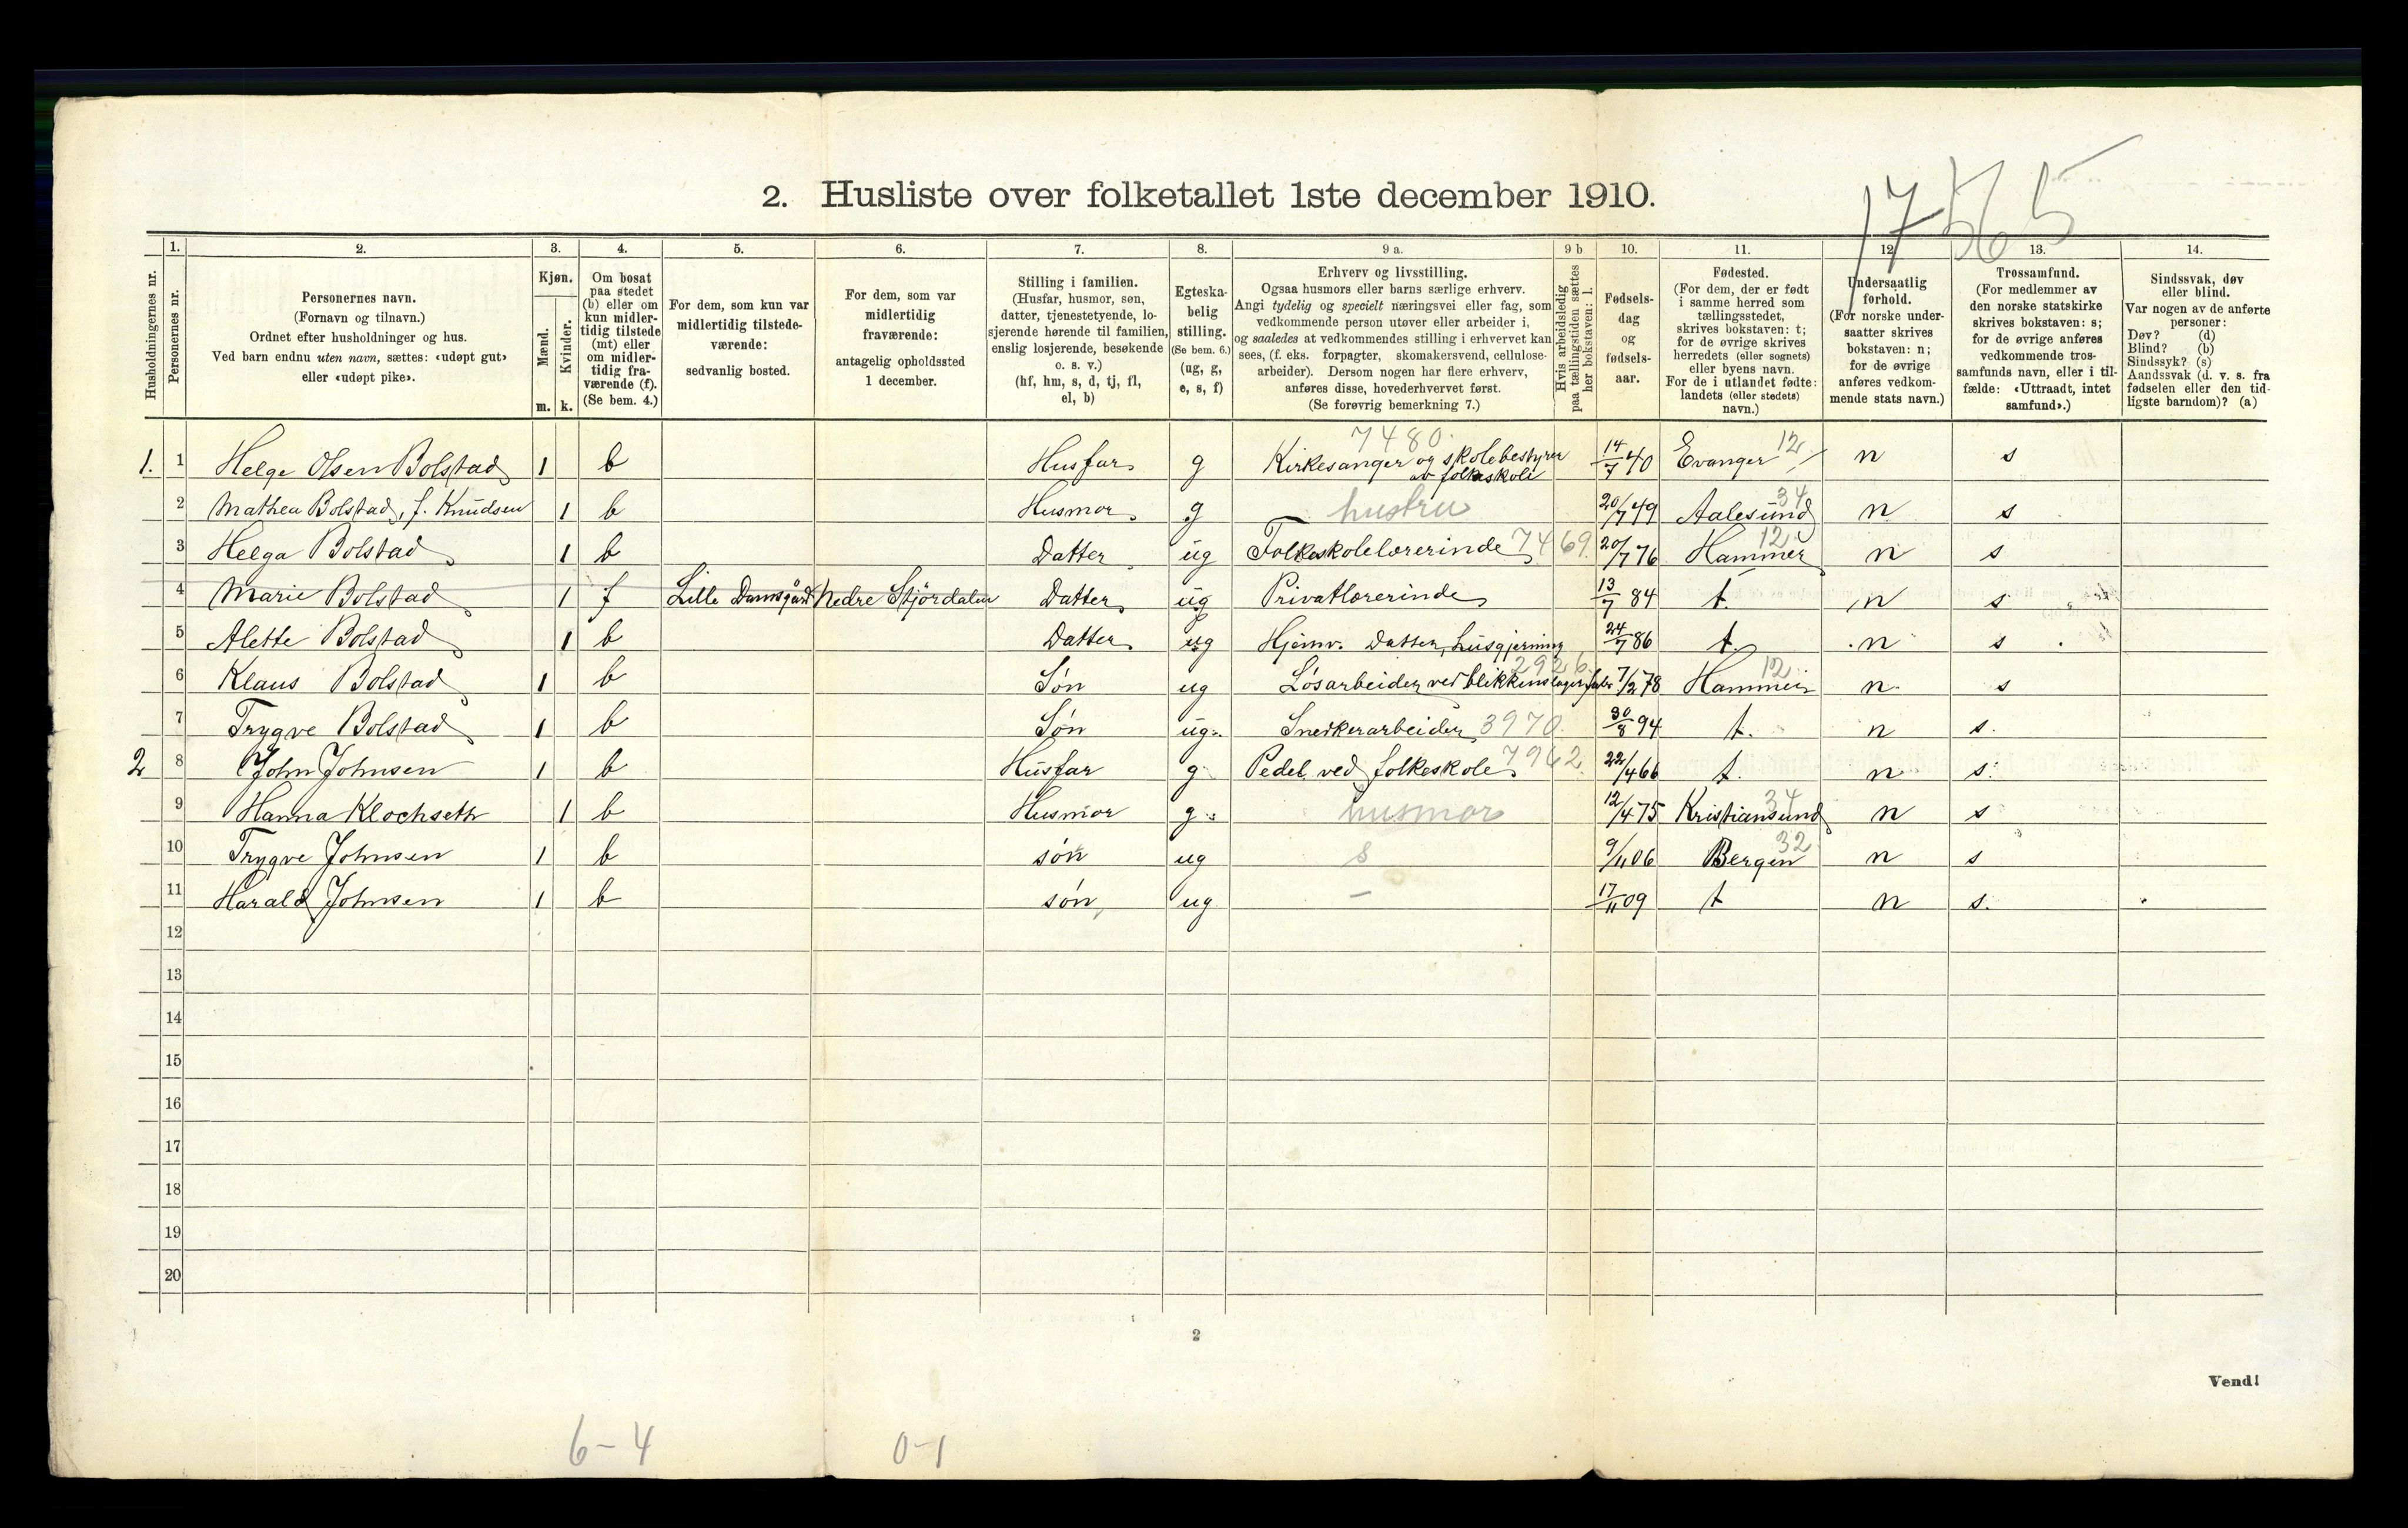 17565
2. Husliste over folketallet 1ste december 1910.
1. 2. 3. 4. 5. 6. 7. 8. 9 a. 9 b 10. 11. 12. 13. 14.
Husholdningernes nr.
Personernes nr.
Personernes navn.
(Fornavn og tilnavn.)
Ordnet efter husholdninger og hus.
Ved barn endnu uten navn, sættes: «udøpt gut»
eller «udøpt pike».
Kjøn.
Mænd.
Kvinder.
m. k.
Om bosat
paa stedet
(b) eller om
kun midler-
tidig tilstede
(mt) eller
om midler-
tidig fra-
værende (f).
(Se bem. 4.)
For dem, som kun var
midlertidig tilstede-
værende:
sedvanlig bosted.
For dem, som var
midlertidig
fraværende:
antagelig opholdssted
1 december.
Stilling i familien.
(Husfar, husmor, søn,
datter, tjenestetyende, lo-
sjerende hørende til familien,
enslig losjerende, besøkende
o. s. v.)
(hf, hm, s, d, tj, fl,
el, b)
Egteska-
belig
stilling.
(Se bem. 6.)
(ug, g,
e, s, f)
Erhverv og livsstilling.
Ogsaa husmors eller barns særlige erhverv.
Angi tydelig og specielt næringsvei eller fag, som
vedkommende person utøver eller arbeider i,
og saaledes at vedkommendes stilling i erhvervet kan
sees, (f. eks. forpagter, skomakersvend, cellulose-
arbeider). Dersom nogen har flere erhverv,
anføres disse, hovederhvervet først.
(Se forøvrig bemerkning 7.)
Hvis arbeidsledig
paa tællingstiden sættes
her bokstaven: l.
Fødsels-
dag
og
fødsels-
aar.
Fødested.
(For dem, der er født
i samme herred som
tællingsstedet,
skrives bokstaven: t;
for de øvrige skrives
herredets (eller sognets)
eller byens navn.
For de i utlandet fødte:
landets (eller stedets)
navn.)
Undersaatlig
forhold.
(For norske under-
saatter skrives
bokstaven: n;
for de øvrige
anføres vedkom-
mende stats navn.)
Trossamfund.
(For medlemmer av
den norske statskirke
skrives bokstaven: s;
for de øvrige anføres
vedkommende tros-
samfunds navn, eller i til-
fælde: «Uttraadt, intet
samfund».)
Sindssvak, døv
eller blind.
Var nogen av de anførte
personer:
Døv? (d)
Blind? (b)
Sindssyk? (s)
Aandssvak (d. v. s. fra
fødselen eller den tid-
ligste barndom)? (a)
7480.
1. 1 Helge Olsen Bolstad 1 b Husfar g Kirkesanger og skolebestyrer av folkeskole 14/7 40 Evanger 12 n s
2 Mathea Bolstad, f. Knudsen 1 b Husmor g hustru 20/7 49 Aalesund 34 n s
3 Helga Bolstad 1 b Datter ug Folkeskolelærerinde 7469. 20/7 76 Hammer 12 n s
4 Marie Bolstad 1 f Lille Damsgård Nedre Stjördalen Datter ug Privatlærerinde 13/7 84 t. n s
5 Alette Bolstad 1 b Datter ug Hjemv. Datter, husgjerning 24/7 86 t. n s
6 Klaus Bolstad 1 b Sön ug Lösarbeider ved blikkenslagerfabr 2926. 7/2 78 Hammer 12 n. s
7 Trygve Bolstad 1 b Sön ug. Snedkerarbeider 3970. 30/8 94 t. n s.
2 8 John Johnsen 1 b Husfar g Pedel ved folkeskole 7962. 22/4 66 t. n s.
9 Hanna Klochseth 1 b Husmor g. husmor 12/4 75 Kristiansund 34 n s
10 Trygve Johnsen 1 b sön ug s 9/11 06 Bergen 32 n s
11 Harald Johnsen 1 b sön, ug – 17/11 09 t n s.
12
13
14
15
16
17
18
19
20
2
Vend!
6-4 0-1